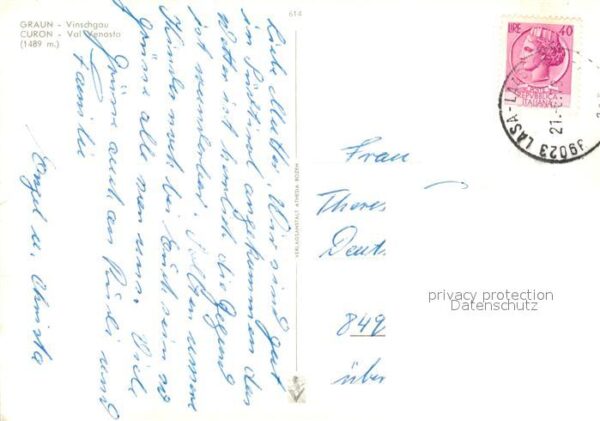 GRAUN - Vinschgau
CURON - Val Venosta
(1489 m.)
614
Liebe Mutti! Wir sind gut
in Südtirol angekommen das
Wetter ist herrlich die Gegend
ist wunderbar. Sollten unsere
Kinder noch bei Euch sein so
grüsse alle von uns. Viele
Grüsse auch an Rudi und
Familie
u. Christa
VERLAGSANSTALT ATHESIA BOZEN
LIRE 40
REPUBBLICA
ITALIANA
39023 LASA-LA
21.
Frau
Theres
Deut.
849
über
privacy protection
Datenschutz